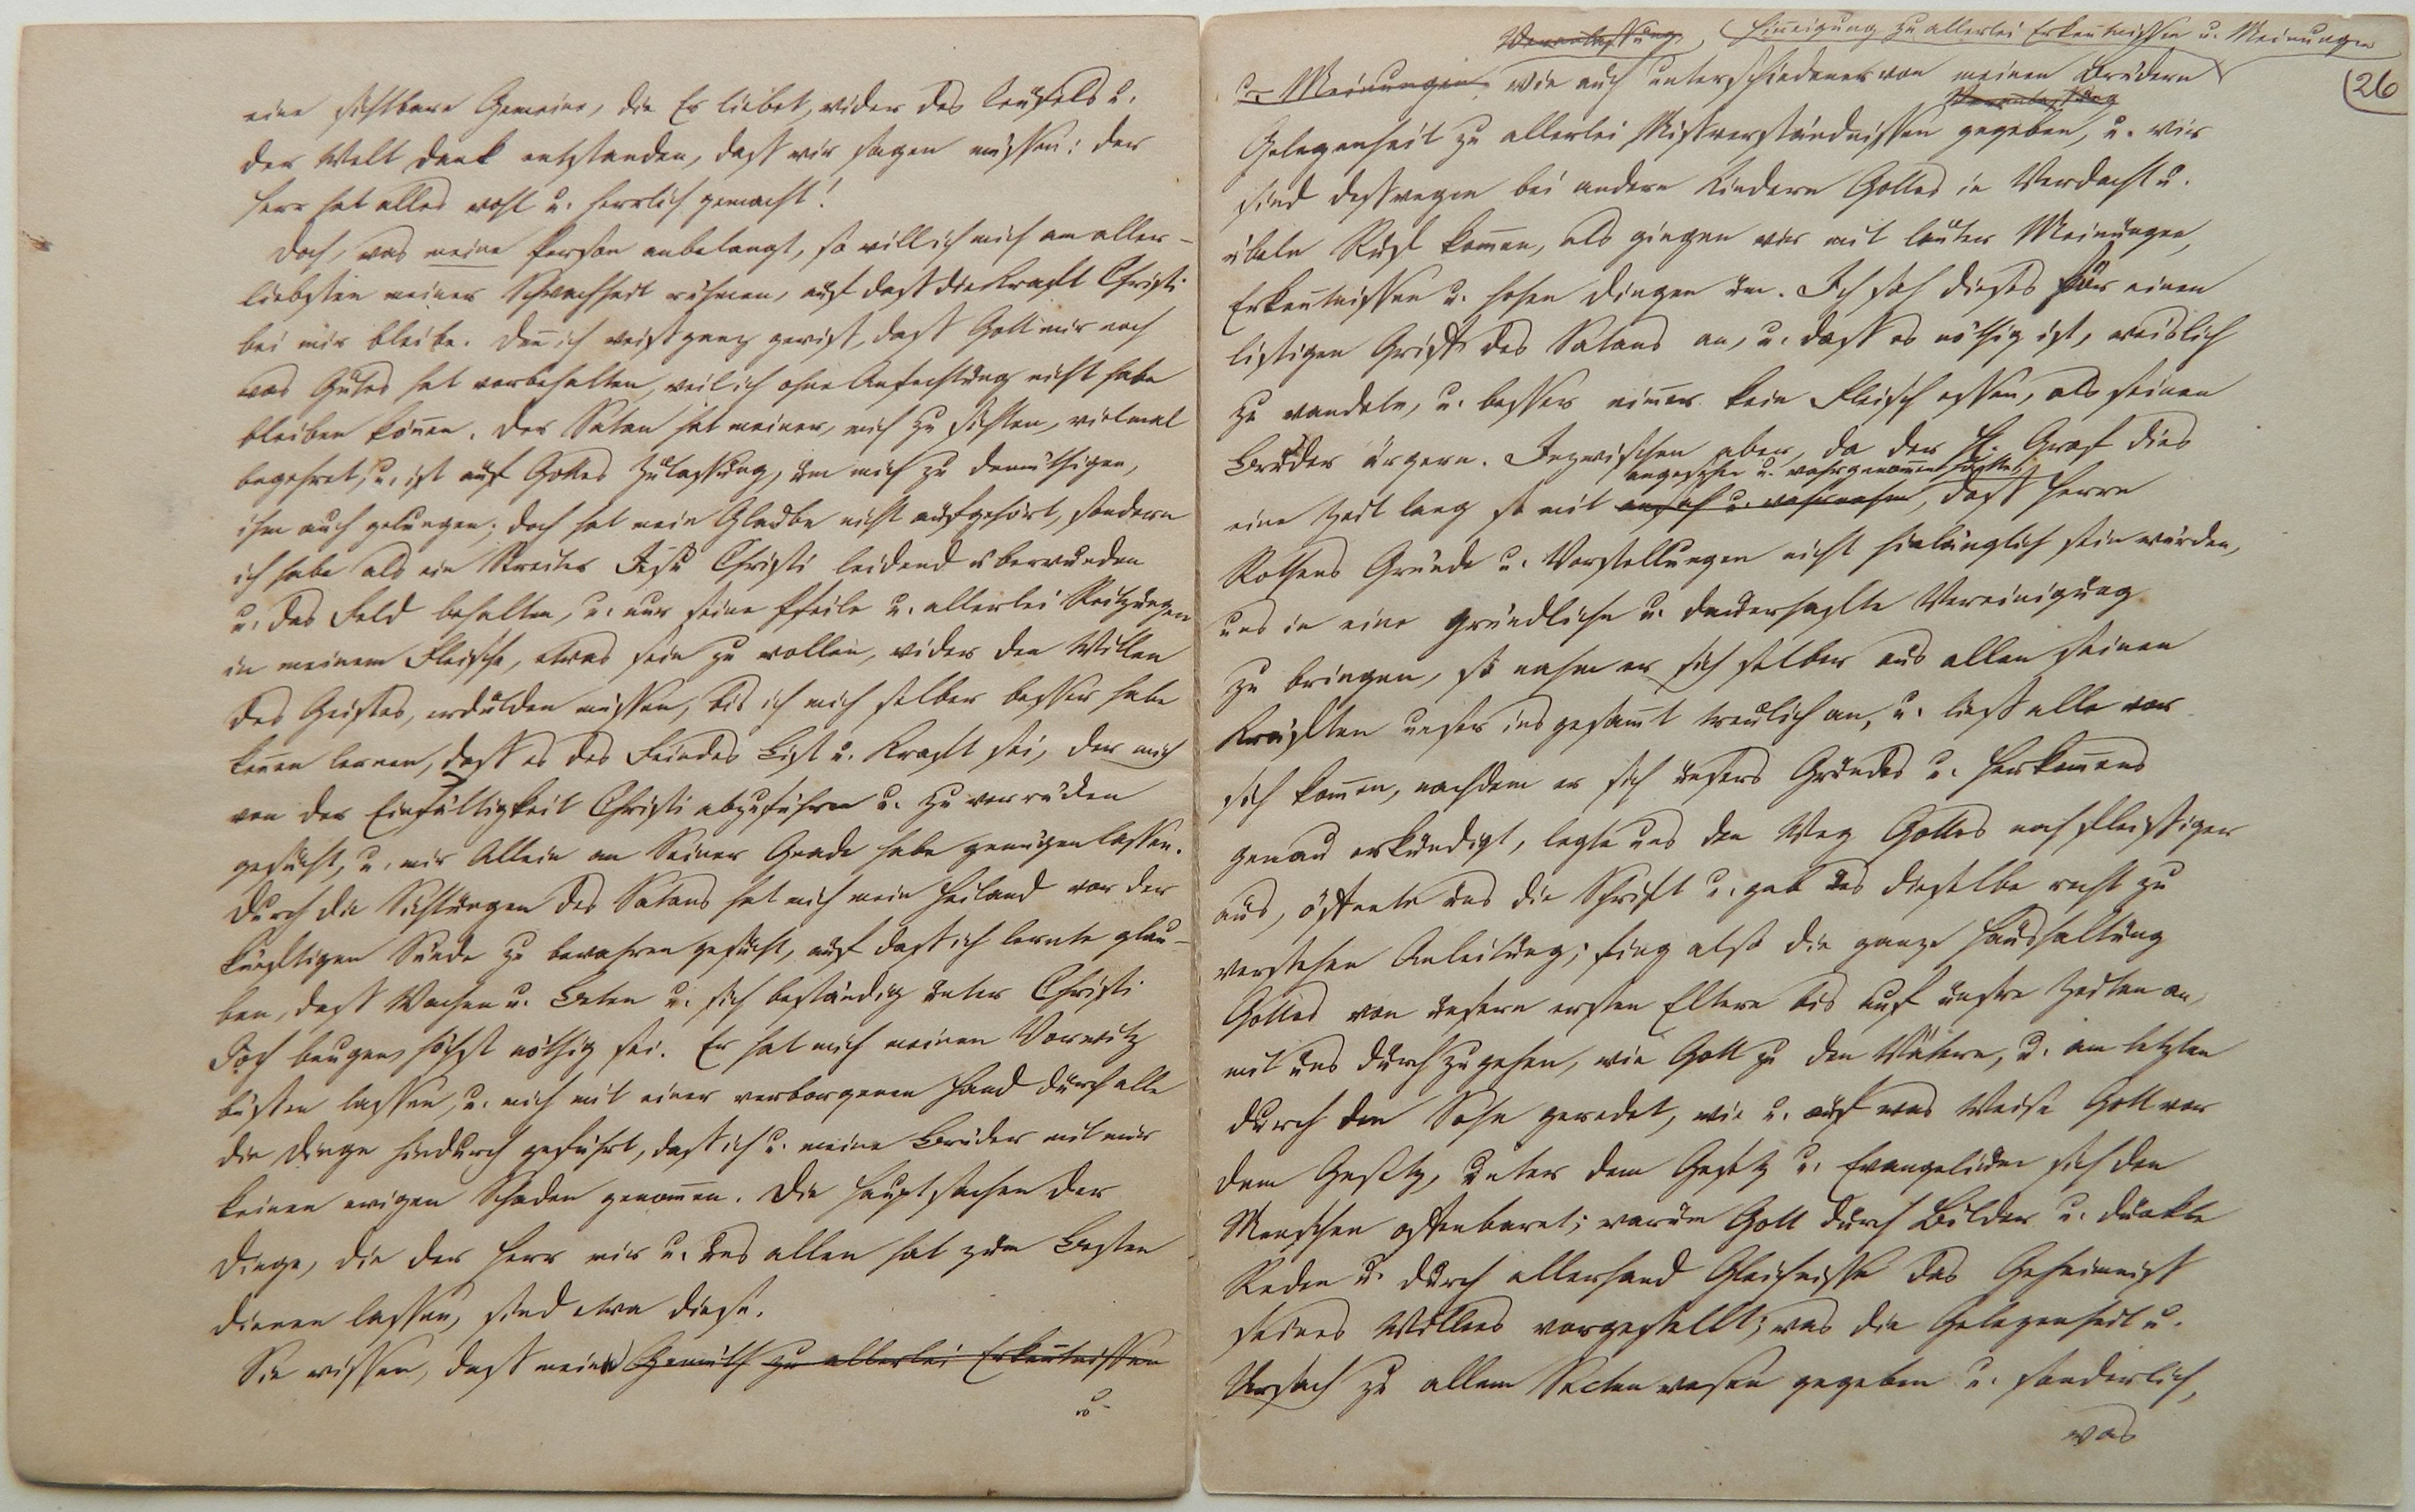 eine sichtbare Gemeine, die Er liebet, wider des Teufels u.
der Welt Dank entstanden, daß wir sagen müssen: der
Herr hat alles wohl u. herrlich gemacht!
Doch, was meine Person anbelangt, so will ich mich am aller-
liebsten meiner Schwachheit rühmen, auf daß die Kraft Christi
bei mir bleibe. Deñ ich weiß ganz gewiß, daß Gott mir noch
was Gutes hat vorbehalten, weil ich ohne Anfechtung nicht habe
bleiben kön̄en. Der Satan hat meiner, mich zu sichten, vielmal
begehret, u. ist auf Gottes Zulassung, um mich zu demüthigen,
ihm auch gelungen; doch hat mein Glaube nicht aufgehört, sondern
ich habe als ein Streiter Jesu Christi leidend überwunden
u. das Feld behalten, u. nur seine Pfeile u. allerlei Reitzungen
in meinem Fleische, etwas sein zu wollen, wider den Willen
des Geistes, erdulden müssen, bis ich mich selber besser habe
ken̄en lernen, daß es des Feindes List u. Kraft sei, der mich
von der Einfältigkeit Christi abzuführen u. zu verrücken
gesucht, u. mir Allein an Seiner Gnade habe genügen lassen.
Durch die Sichtungen des Satans hat mich mein Heiland vor der
künftigen Sünde zu bewahren gesucht, auf daß ich lernte glau-
ben, daß Wachen u. Beten u. sich beständig unter Christi
Joch beugen, höchst nöthig sei. Er hat mich meinen Vorwitz
büßen lassen, u. mich mit einer verborgenen Hand durch alle
die Dinge hindurch geführt, daß ich u. meine Brüder mit mir
keinen ewigen Schaden genom̄en. Die Hauptsachen der
Dinge, die der Herr mir u. uns allen hat zum Besten
dienen lassen, sind etwa diese.
Sie wissen, daß meine Gemüth zu allerlei Erkeñtnissen
u.
Veranlassung, Hin̄eigung zu allerlei Erkeñtnissen u. Meinungen
26
u. Meinungen, wie auch unterschiedener von meinen Brüdern
Veranlassung
Gelegenheit zu allerlei Mißverständnissen gegeben, u. wir
sind deßwegen bei andern Kindern Gottes in Verdacht u.
übeln Ruf kom̄en, als gingen wir mit lauter Meinungen,
Erkeñtnissen u. hohen Dingen um. Ich sah dieses für einen
listigen Griff des Satans an, u. daß es nöthig ist, weislich
zu wandeln, u. besser nim̄er kein Fleisch essen, als seinen
Bruder ärgern. Inzwischen aber, da der H. Graf dies
angesehen u. wahrgenom̄en hatte
eine Zeit lang so mit ansah u. wahrnahm, daß Herrn
Rothens Gründe u. Vorstellungen nicht hinlänglich sein würden,
uns in eine gründliche u. dauerhafte Vereinigung
zu bringen, so nahm er sich selber aus allen seinen
Kräften unser insgesam̄t treulich an, u. ließ alle vor
sich kom̄en, nachdem er sich unsers Grundes u. Herkom̄ens
genau erkundigt, legte uns den Weg Gottes noch fleißiger
aus, öffnete uns die Schrift u. gab uns dieselbe recht zu
verstehen Anleitung; fing also die ganze Haushaltung
Gottes von unsern ersten Eltern bis auf unsre Zeiten an,
mit uns durchzugehen, wie Gott zu den Vätern, u. am letzten
durch den Sohn geredet, wie u. auf was Weise Gott vor
dem Gesetz, unter dem Gesetz u. Evangelium sich den
Menschen offenbaret; warum Gott durch Bilder u. dunkle
Reden u. durch allerhand Gleichnisse das Geheimniß
seines Willens vorgestellt; was die Gelegenheit u.
Ursach zu allem Sectenwesen gegeben u. sonderlich,
was